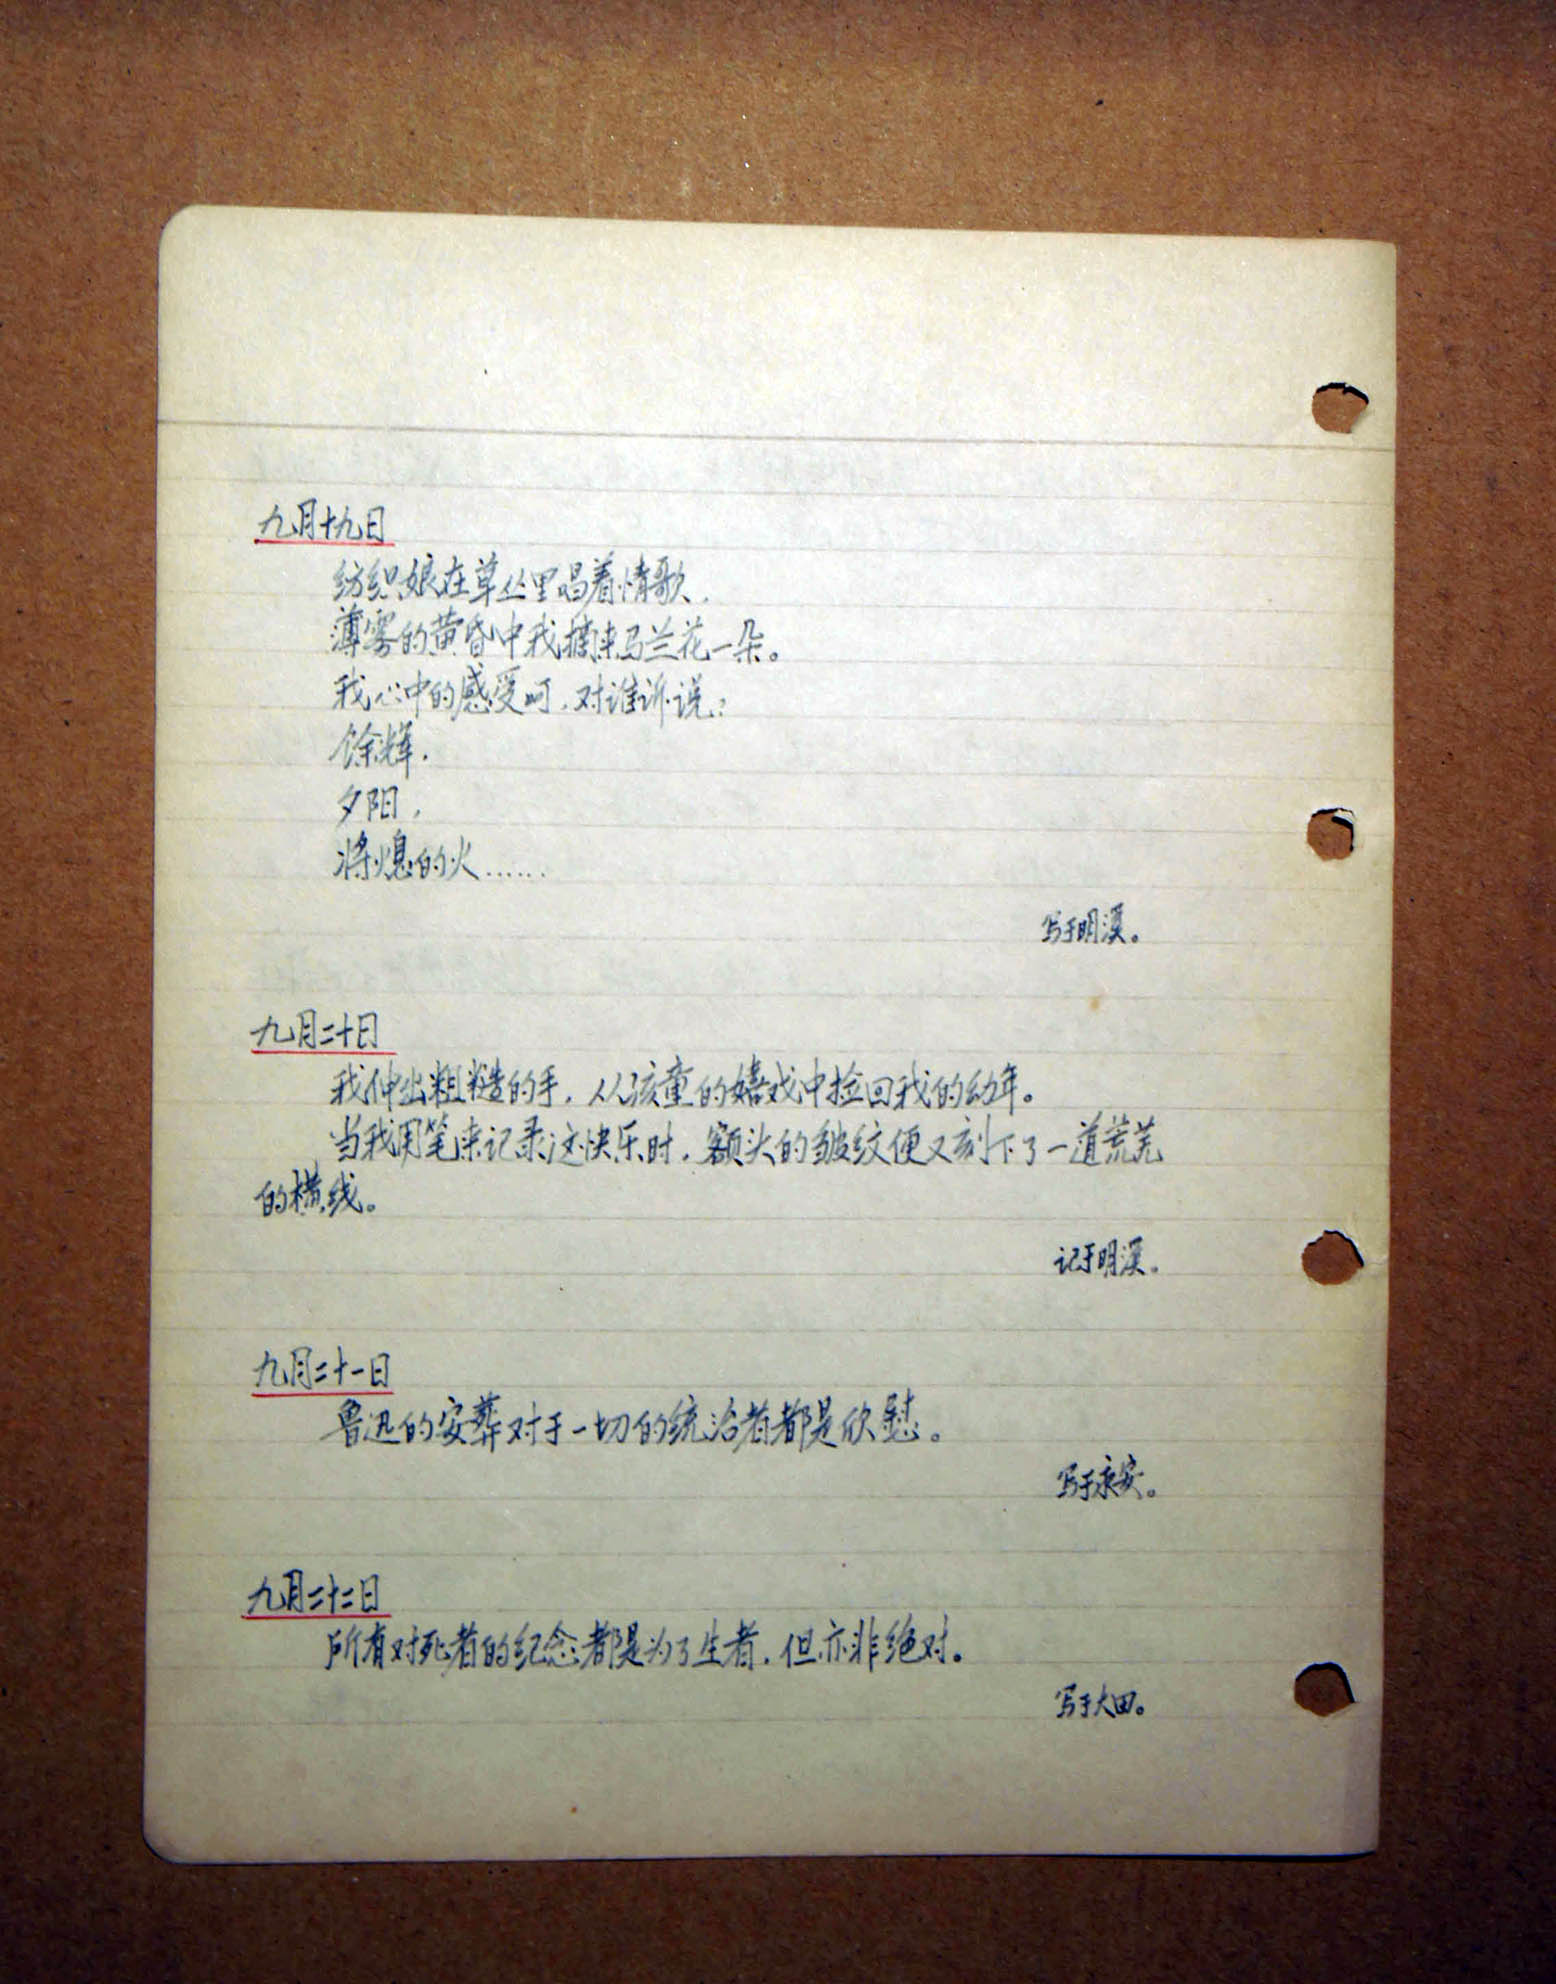 九月十九日
纺织娘在草丛里唱着情歌，
薄雾的黄昏中我摘来马兰花一朵。
我心中的感受呵，对谁诉说？
馀辉，
夕阳，
将熄的火……
写于明溪。
九月二十日
我伸出粗糙的手，从孩童的嬉戏中捡回我的幼年。
当我用笔来记录这快乐时，额头的皱纹便又刻下了一道荒芜
的横线。
记于明溪。
九月二十一日
鲁迅的安葬对于一切的统治者都是欣慰。
写于永安。
九月二十二日
所有对死者的纪念都是为了生者，但亦非绝对。
写于大田。